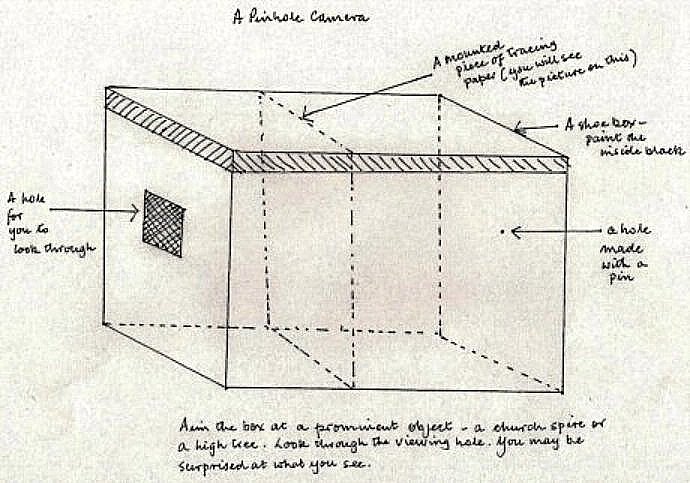 A Pinhole Camera
A mounted
piece of tracing
paper (you will see
the picture on this)
A shoe box -
paint the
inside black
A hole
for
you to
look through
a hole
made
with a
pin
Aim the box at a prominent object - a church spire or
a high tree. Look through the viewing hole. You may be
surprised at what you see.